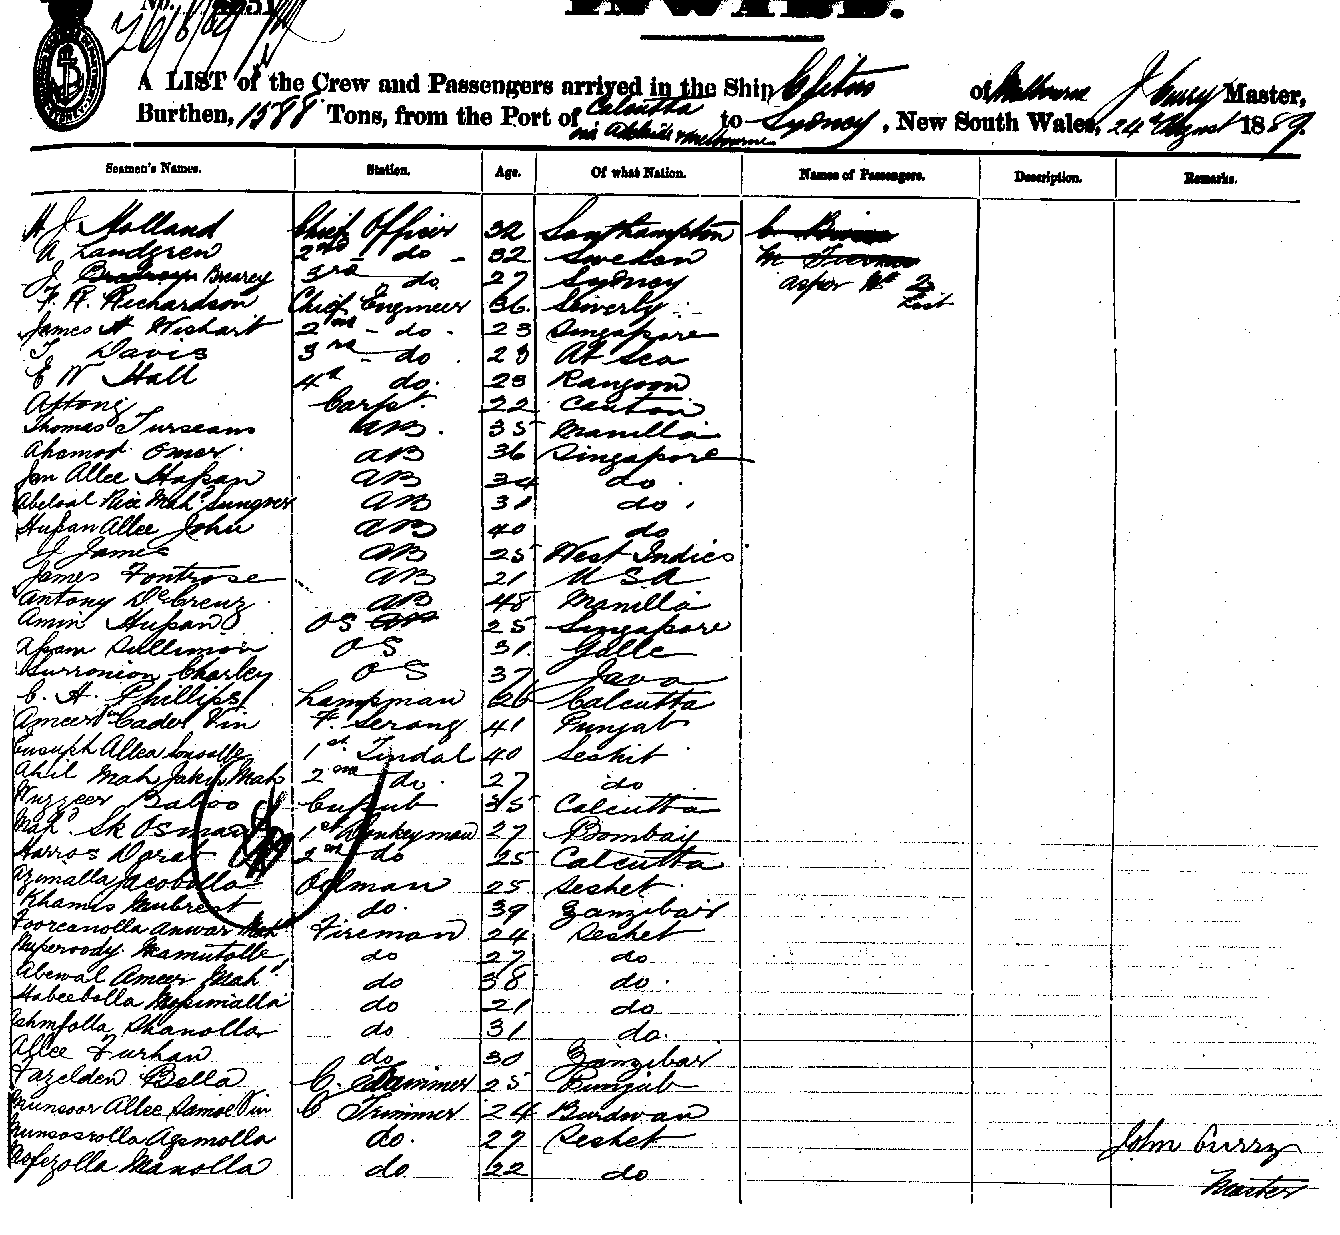 No.
26/8/89
INWARD.
A LIST of the Crew and Passengers arrived in the Ship Clitus of Melbourne J Curry Master,
Burthen, 1588 Tons, from the Port of Calcutta via Adelaide & Melbourne to Sydney, New South Wales, 24th August 1889.
Seamen's Names. Station. Age. Of what Nation. Names of Passengers. Description. Remarks.
H J Holland Chief Officer 32 Southampton
A Landgren 2nd do 32 Sweden
J Brearey 3rd do 27 Sydney as per List
F. R. Richardson Chief Engineer 36
James H Wishart 2nd do 23 Singapore
T Davis 3rd do 28 At Sea
E W Hall 4th do. 23 Rangoon
Ahong Carpt. 22 Canton
Thomas AB. 35 Manilla
Ahamod Omer AB 36 Singapore
Jan Allee Hassan AB 34 do.
AB 31 do.
Hassan Allee John AB 40 do
J James AB 25 West Indies
James Fontrose AB 21 USA
Antony DeCreuz AB 48 Manilla
Amin Hassan OS 25 Singapore
OS 31 Galle
Charley OS 37 Java
C. H. Phillips Lampman 26 Calcutta
Ameer Cader Vin F. Serang 41 Punjab
Allea 1st Tindal 40 Seshit
Mah 2nd do. 27 do
Wuzzeer Baboo 35 Calcutta
Mahd Sk Osman 1st Donkeyman 27 Bombay
2nd do 25 Calcutta
Azimalla Jacobolla Oilman 25 Seshet
Khamis Mubrest do. 39 Zanzibar
Toorcanolla Anwar Mah Fireman 24 Seshet
do 27 do
Abewal Ameer Mahd do 38 do.
Habeebolla do 21 do
Shanolla do 31 do.
Allee Furhan do 30 Zanzibar
Fazelden Bella C. Trimmer 25 Punjub
Munsoor Allee C Trimmer 24 Burdwan
Munsosrolla Agsmolla do. 27 Seshet John Curry
Mofezolla Manolla do 22 do Master